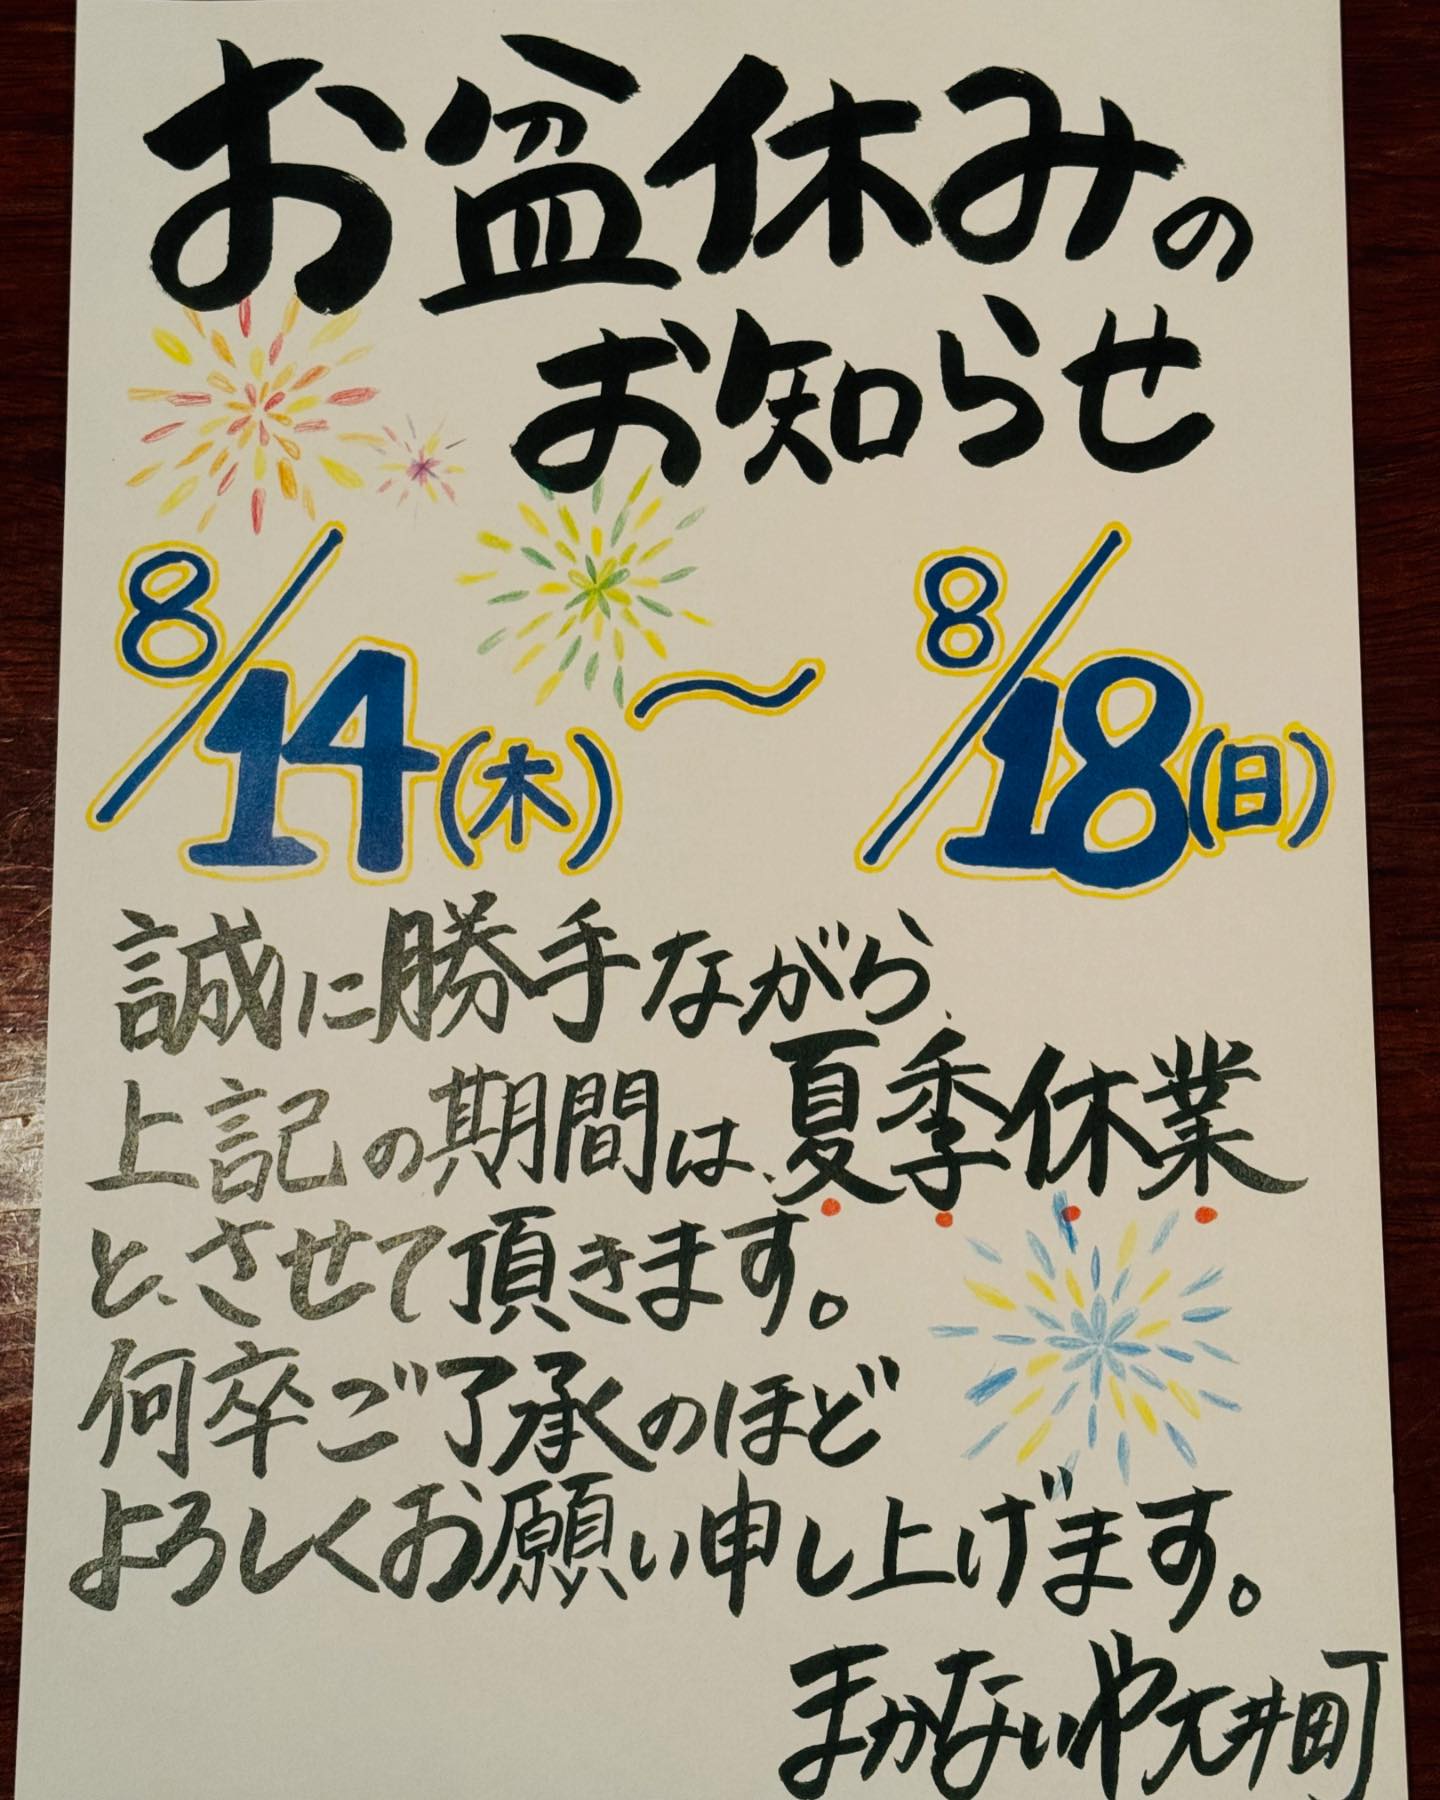 お盆休みの
お知らせ
8/14(木)～8/18(日)
誠に勝手ながら、
上記の期間は、夏季休業
と、させて頂きます。
何卒ご了承のほど
よろしくお願い申し上げます。
まかないや大井町